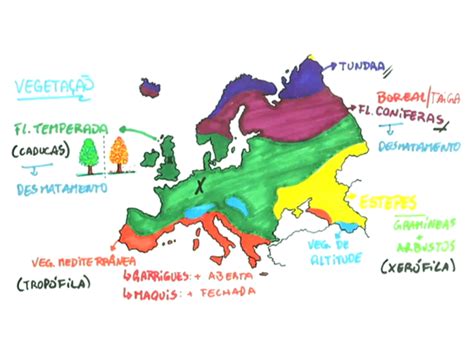 VEGETAÇÃO
FL. TEMPERADA
(CADUCAS)
DESMATAMENTO
TUNDRA
BOREAL/TAIGA
FL. CONÍFERAS
DESMATAMENTO
X
ESTEPES
GRAMÍNEAS
+
ARBUSTOS
(XERÓFILA)
VEG. DE
ALTITUDE
VEG. MEDITERRÂNEA
(TROPÓFILA)
GARRIGUES: + ABERTA
MAQUIS: + FECHADA